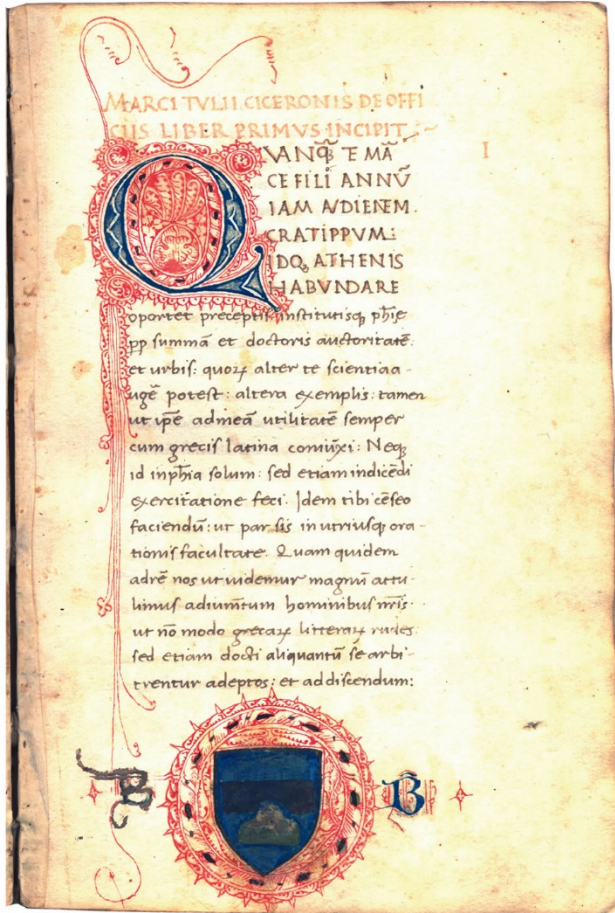 MARCI TVLII CICERONIS DE OFFI
CIIS LIBER PRIMVS INCIPIT
I
QVANQȜ TE MĀ
CE FILI ANNŪ
IAM AVDIENEM.
CRATIPPVM:
IDQȜ ATHENIS
HABVNDARE
oportet preceptis institutisqȝ phīe
pp summā et doctoris auctoritatē:
et urbis: quoꝝ alter te scientia a-
ugē potest: altera exemplis: tamen
ut ipē ad meā utilitatē semper
cum grecis latina coniūxi: Neqȝ
id in phīa solum: sed etiam in dicēdi
exercitatione feci. Idem tibi cēseo
faciendū: ut par sis in utriusqȝ ora-
tionis facultate. Quam quidem
ad rē nos ut uidemur magnū attu-
limus adiumtum hominibus nr̄is.
ut nō modo grecaꝝ litteraꝝ rudes
sed etiam docti aliquantū se arbi-
trentur adeptos: et ad discendum:
B